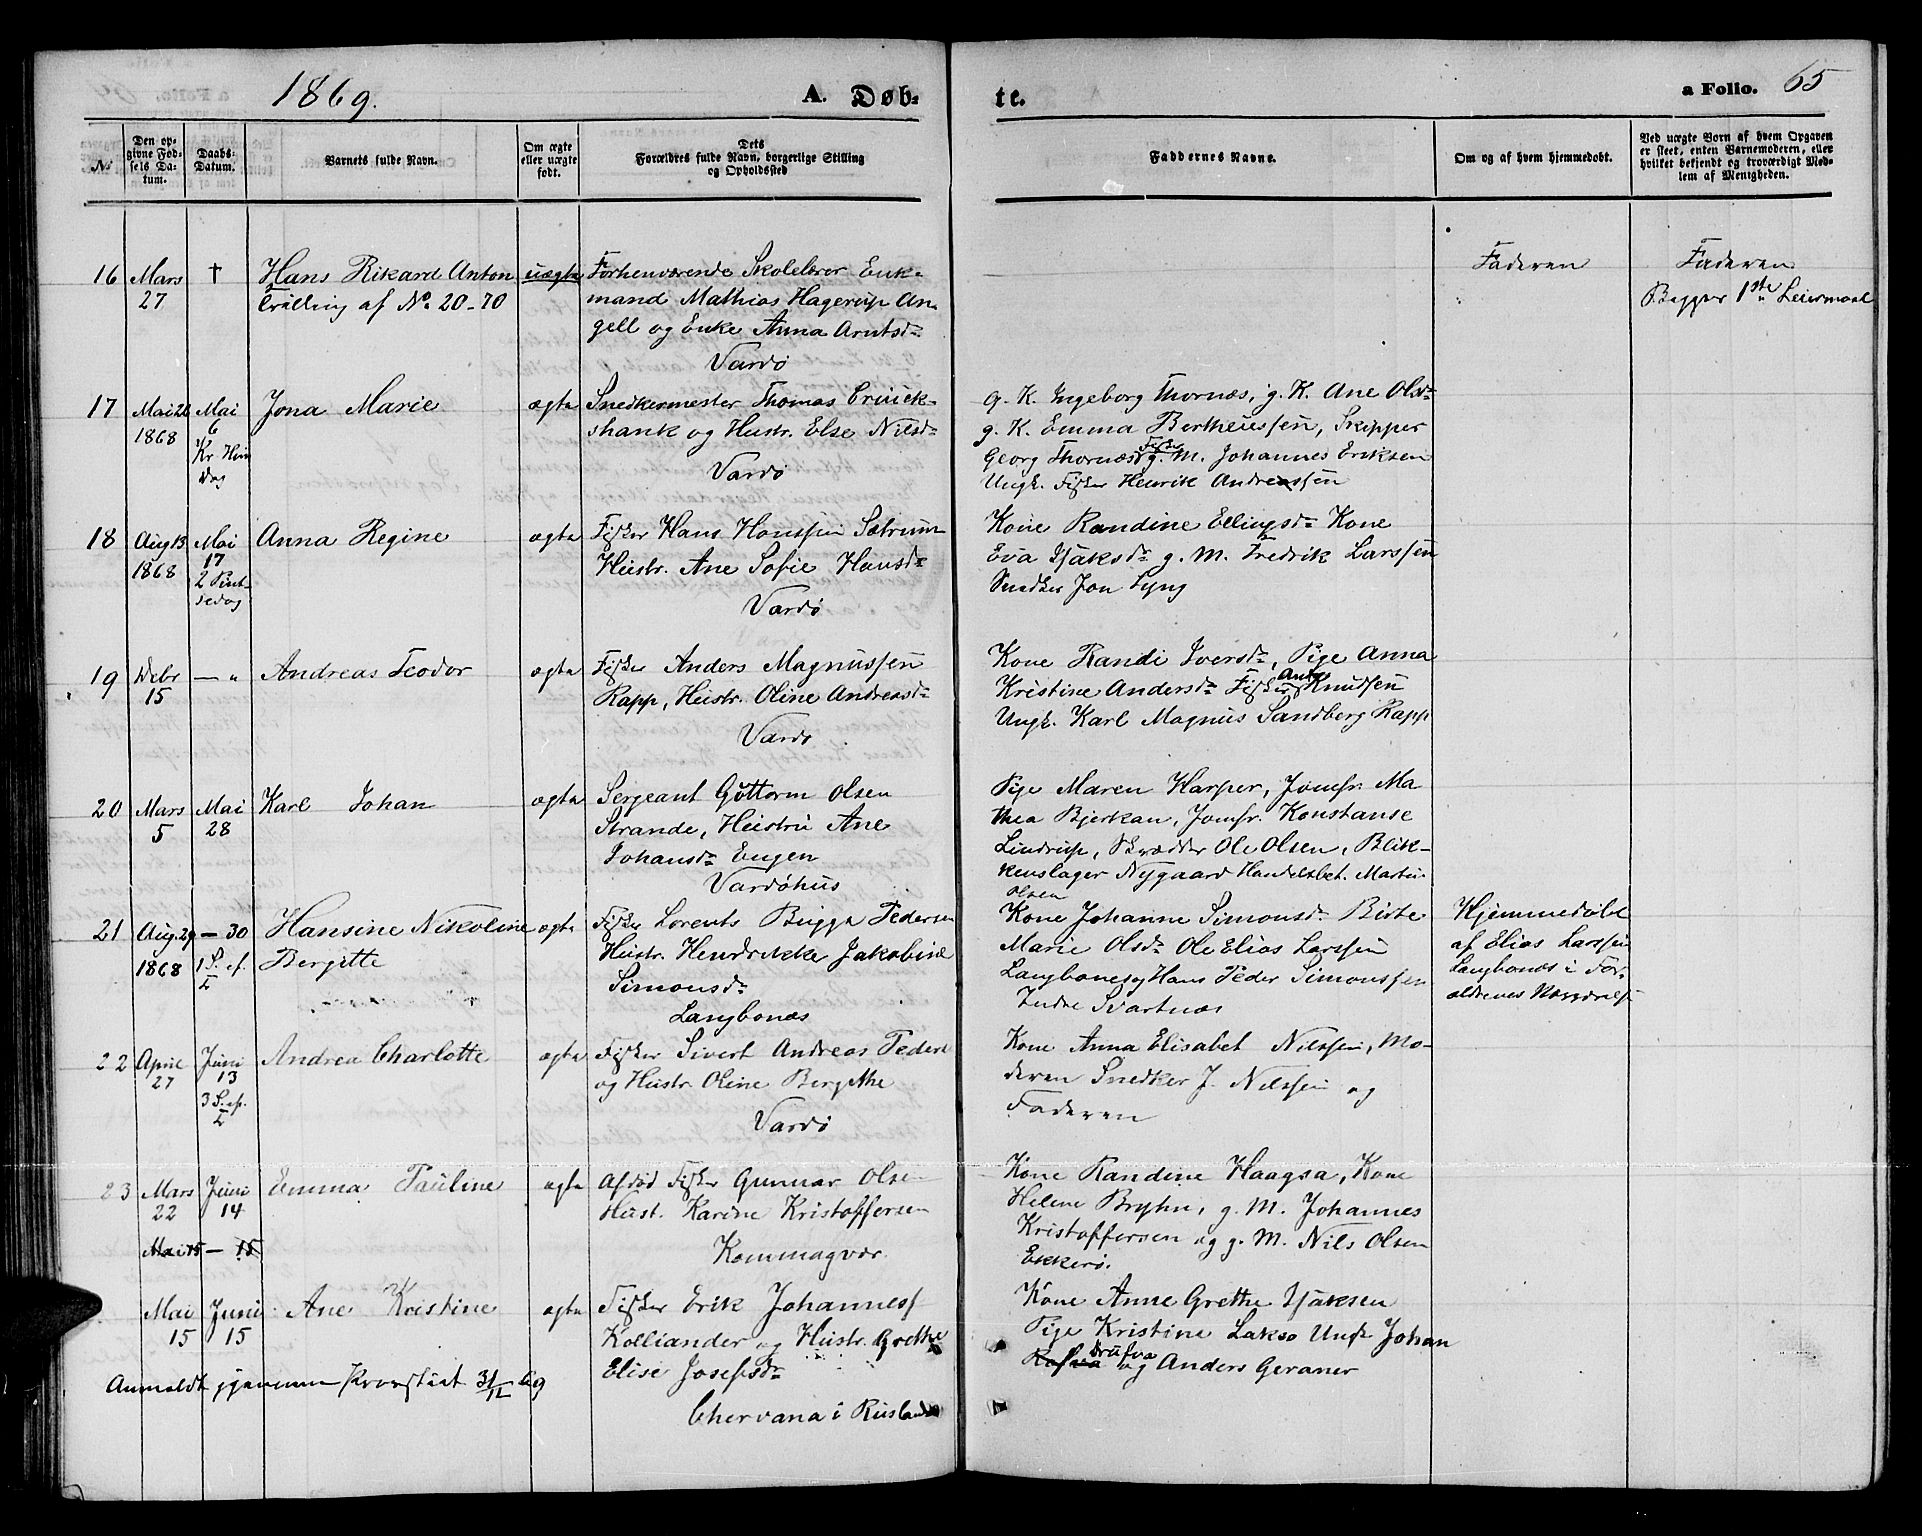 1869. A. Døb- te. a Folio. 65
No
Den opgivne Fødsels Datum.
Daabs-Datum.
Barnets fulde Navn.
Om ægte eller uægte født.
Dets Forældres fulde Navn, borgerlige Stilling og Opholdssted
Faddernes Navne.
Om og af hvem hjemmedøbt.
Ved uægte Børn af hvem Opgaven er skeet, enten Barnemoderen, eller hvilket bekjendt og troværdigt Medlem af Menigheden.
16 Mars † Hans Rikard Anton uægte Forhenværende Skolelærer Enk- Faderen Faderen
27 Trilling af No 20-70 mand Mathias Hagerup An- 1ste Leiermaal
gell og Enke Anna Arntsd.
Vardø
17 Mai 21 Mai Jona Marie ægte Snedkermester Thomas Cruick- g. K. Ingeborg Thornæs, g. K. Ane Olsd.
1868 6 shank og Hustr. Else Nilsd. g. K. Emma Bertheussen, Skipper
Kr Him Vardø Georg Thornæs, Fisker g. M. Johannes Eriksen
dag Ungk. Fisker Henrik Andreassen
18 Aug 13 Mai Anna Regine ægte Fisker Hans Hanssen Sætrum Kone Randine Ellingsd. Kone
1868 17 Hustr. Ane Sofie Hansd. Eva Isaksd. g. M. Fredrik Larssen
2 Pint- Vardø Snedker Jon Lyng
sedag
19 Debr — „ Andreas Teodor ægte Fisker Anders Magnussen Kone Randi Iversd., Pige Anna
15 Rapp, Hustr. Oline Andreasd. Kristine Andersd. Fisker Knudsen
Vardø Ungk. Karl Magnus Sandberg Rapp
20 Mars Mai Karl Johan ægte Sergeant Guttorm Olsen Pige Maren Harper, Jomfr. Ma
5 28 Strande, Hustru Ane thea Bjerkan, Jomfr. Konstanse
Johansd. Engen Lindrup, Skrædder Ole Olsen, Blik-
Vardøhus kenslager Nygaard Handelsbet. Martin
Olsen
21 Aug. 29 — 30 Hansine Nikoline ægte Fisker Lorents Brigga Pedersen Kone Johanne Simonsd. Birte Hjemmedøbt
1868 1 S. ef. Bergitte Hustr. Hendrikke Jakobine Marie Olsd. Ole Elias Larssen af Elias Larssen
Simonsd. Langbones og Hans Peder Simonssen Langbones i For-
Langbonæs Indre Svartnæs ældrenes Nærværelse
22 April Juni Andrea Charlotte ægte Fisker Sivert Andreas Peders Kone Anna Elisabet Nilssen, Mo-
27 13 og Hustr. Oline Bergithe deren Snedker J. Nilssen og
3 S. ef. Vardø Faderen
23 Mars Juni Emma Pauline ægte Afdød Fisker Gunnar Olsen Kone Randine Haagsa, Kone
22 14 Hust. Karine Kristoffersen Helene Bryhn, g. M. Johannes
Mai 15 — 15 Kommagvær Kristoffersen og g. M. Nils Olsen
Ekkerø.
Mai Juni Ane Kristine ægte Fisker Erik Johanness Kone Anne Grethe Isaksen
15 15 Kolliander og Hustr. Grethe Pige Kristine Lakso Ungk Johan
Anmeldt gjennem Provstiet 31/12 69 Elise Josefsd. Drufva og Anders Geraner
Chervana i Rusland